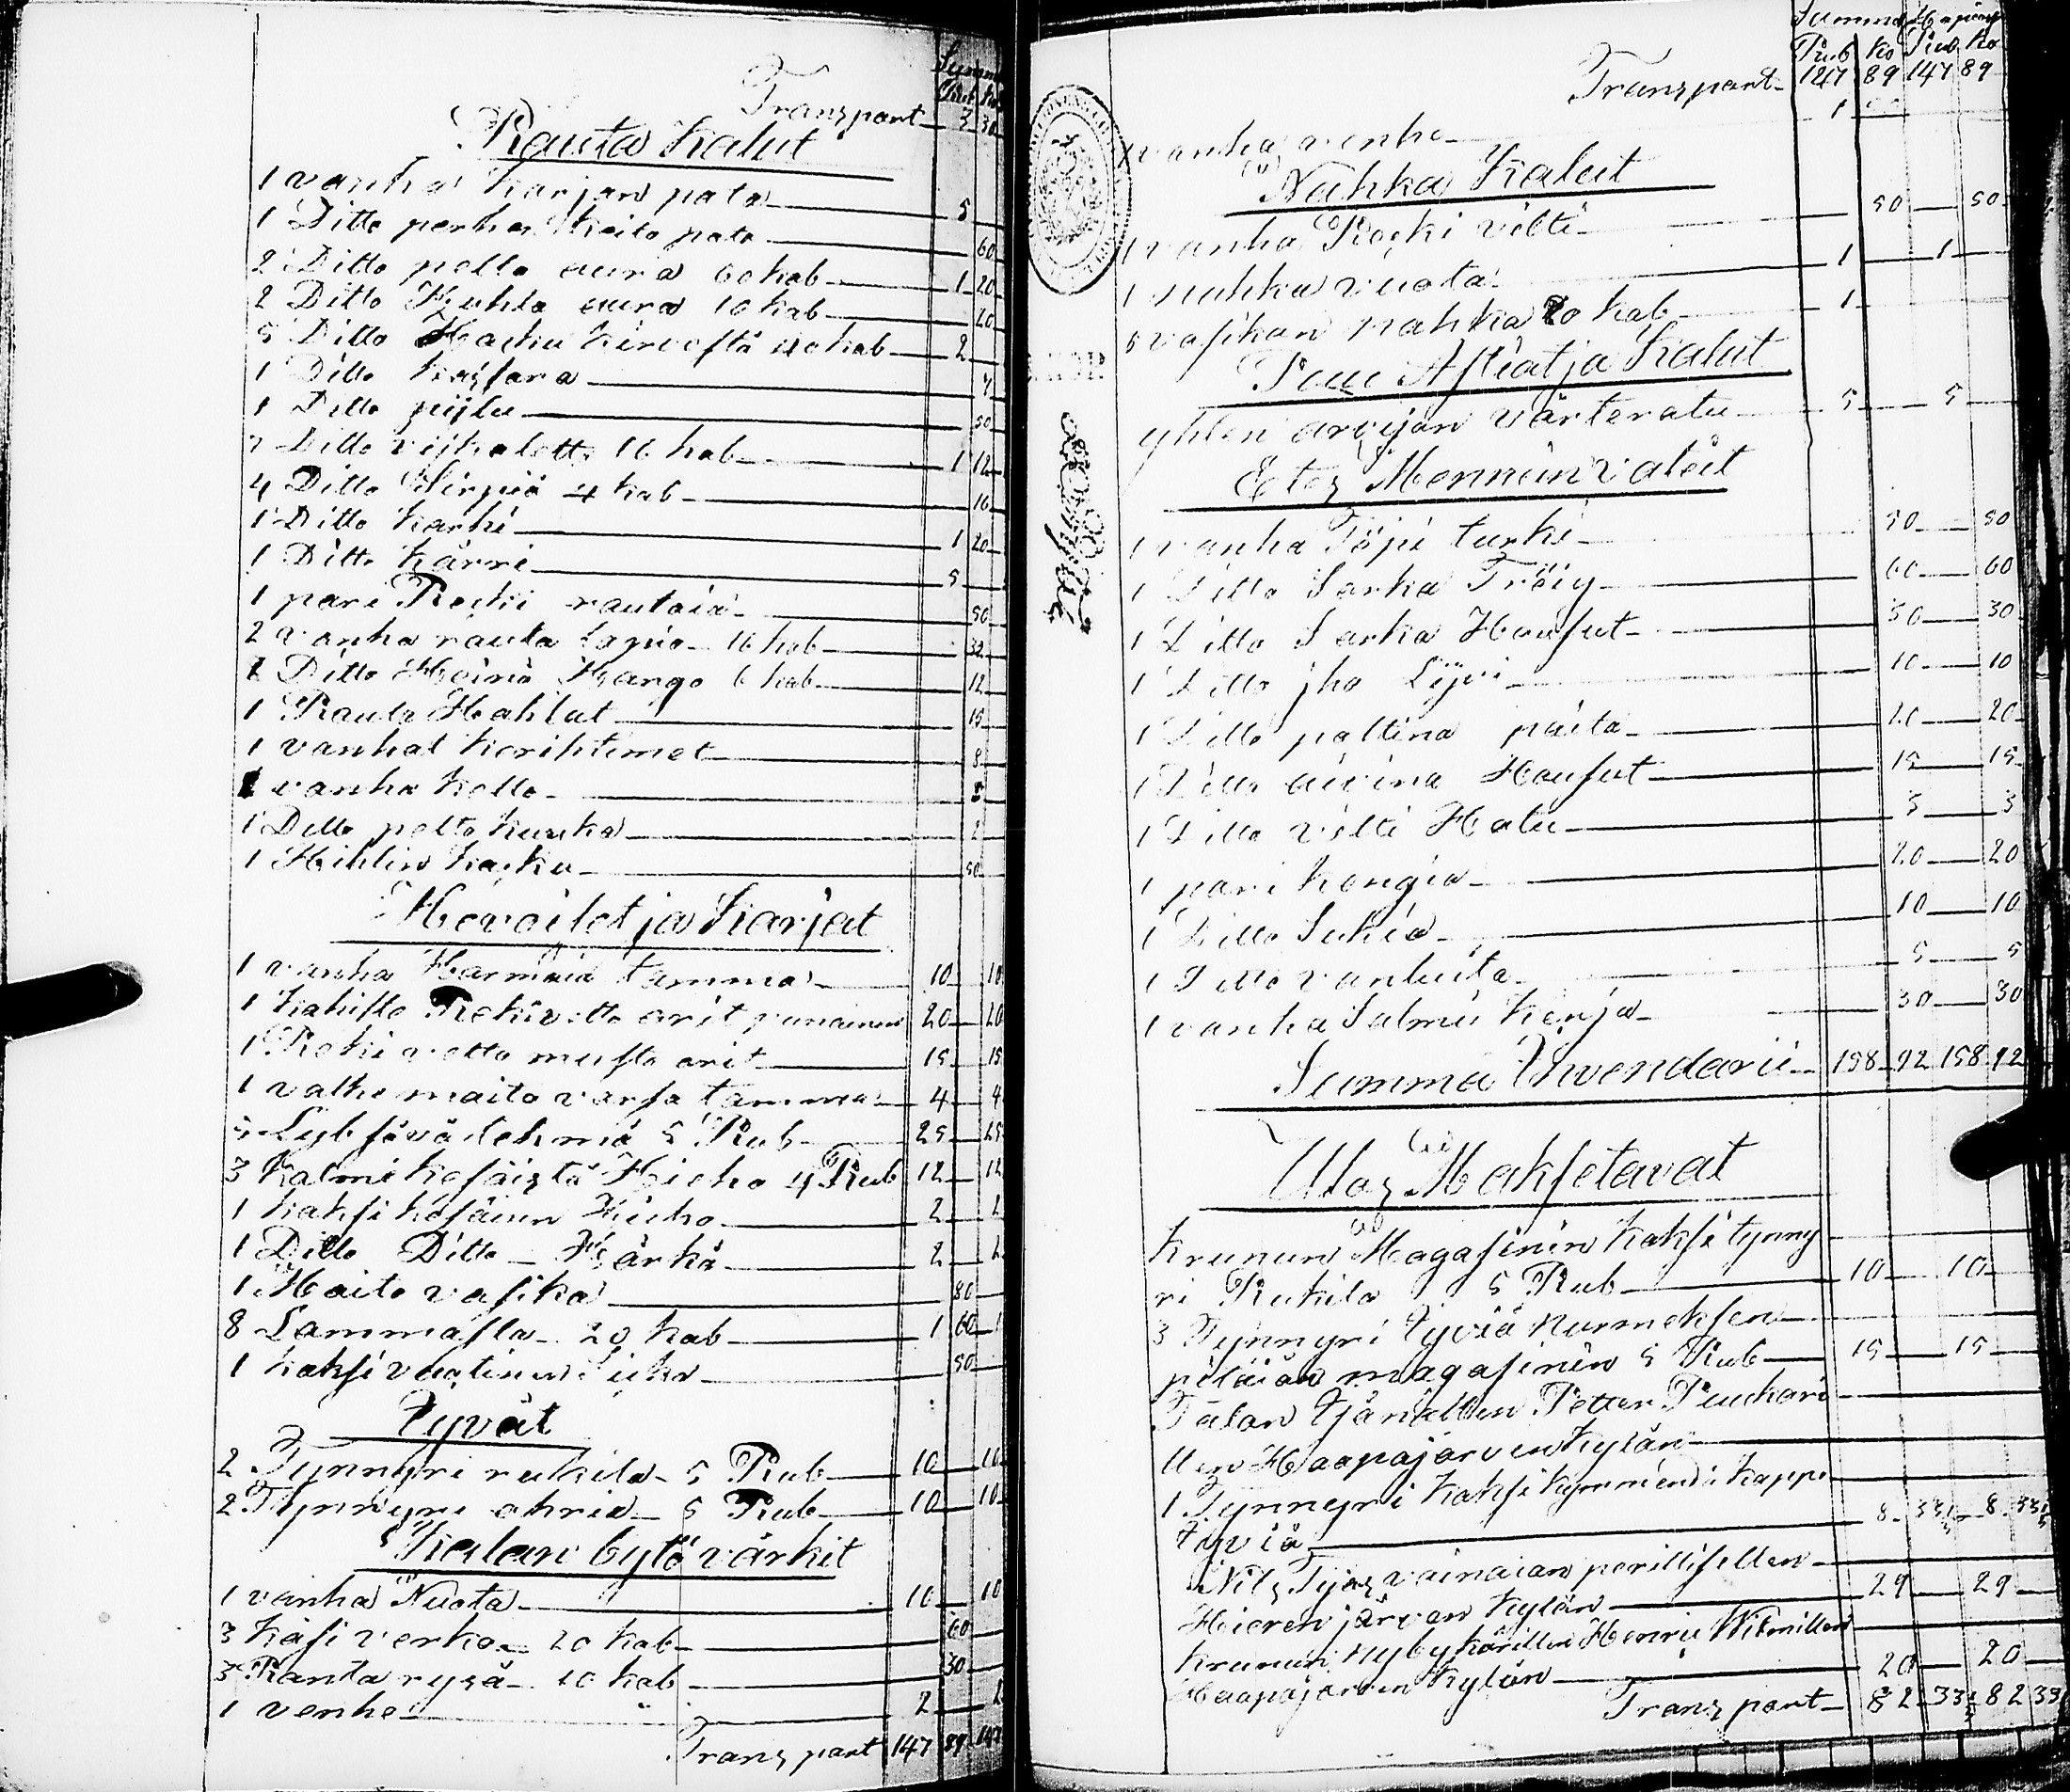 Summa
Rub Ko
Transport 3 30
Rauta Kalut
1 vanha Karjan pata 5
1 Ditto perhen Keito pata 60
2 Ditto pello aura 60 kab 1 20
2 Ditto Kuhla aura 10 kab 20
5 Ditto Hacku Kirvestä 40 kab 2
1 Ditto Kassara 7
1 Ditto pijlu 50
7 Ditto vijkatetta 16 kab 1 12
4 Ditto Sirpiä 4 kab 16
1 Ditto Karhi 1 20
1 Ditto Kärri 5
1 pari Recki rautoia 50
2 vanha rauta lapio 16 kab 32
2 Ditto Heinä Hango 6 kab 12
1 Rauta Hahlat 15
1 vanhat Kerihtimet 8
1 vanha Kello 8
1 Ditto pelto Kuocka 2
1 Hihlin Kacku 50
Hevoiset ja Karjat
1 vanha Harmaia tamma 10 10
1 Kahisto Rekivetto orit punainen 20 20
1 Reki vetto musta orit 15 15
1 valke maito varsa tamma 4 4
5 Lybsävä lehmä 5 Rub 25 25
3 Kolmi kesäistä Hieho 4 Rub 12 12
1 Kaksi kesäinen Hieho 2 2
1 Ditto Ditto Härkä 2 2
1 Maito vasika 80
8 Lammasta 20 kab 1 60 1
1 Kaksi vuotinen Sika 50
Jyvät
2 Tynnyri rukita 5 Rub 10 10
2 Tynnyri ohria 5 Rub 10 10
Kalan bytö värkit
1 vanha Nuota 10 10
3 Käsi verkoa 20 kab 60
3 Ranta rysä 10 kab 30
1 venhe 2 2
Transport 147 89 147
Summa
Rub Ko Rub Ko
Transport 147 89 147 89
1 vanha venhe 1
Nahka Kalut
1 vanha Recki vilti 50 50
1 nahka vuota 1 1
5 vasikan nahka 20 kab 1
Puu Astiat ja Kalut
yhten arvijan värteratu 5 5
Etes Mennein vateit
1 vanha Töpi turki 50 50
1 Ditto Sarka Tröiy 60 60
1 Ditto Sarka Housut 30 30
1 Ditto jho Lijvi 10 10
1 Ditto paltina paita 20 20
1 Ditto aivina Housut 15 15
1 Ditto vilti Hatu 3 3
1 pari Kengiä 20 20
1 Ditto Sukia 10 10
1 Ditto vanhuita 5 5
1 vanha Salmu Kirja 30 30
Summa Invendarii 158 92 158 92
Ulos Maksetavat
Krunun Magasinin Kaksi tynny
ri Rukita 5 Rub 10 10
3 Tynnyri Jyviä Nurmeksen
pitäiän magasinin 5 Rub 15 15
Talan Isänällen Petter Puuhari
llen Haapajärven Kylän
1 Tynnyri Kaksi Kymmendä Kappa
Jyviä 8 33⅓ 8 33⅓
Nils Tijas vainaian perillisellen
Hieren järven Kylän 29 29
Krunun nybykärillen Henric Wikmillen
Haapajärven Kylän 20 20
Transport 82 33⅓ 82 33